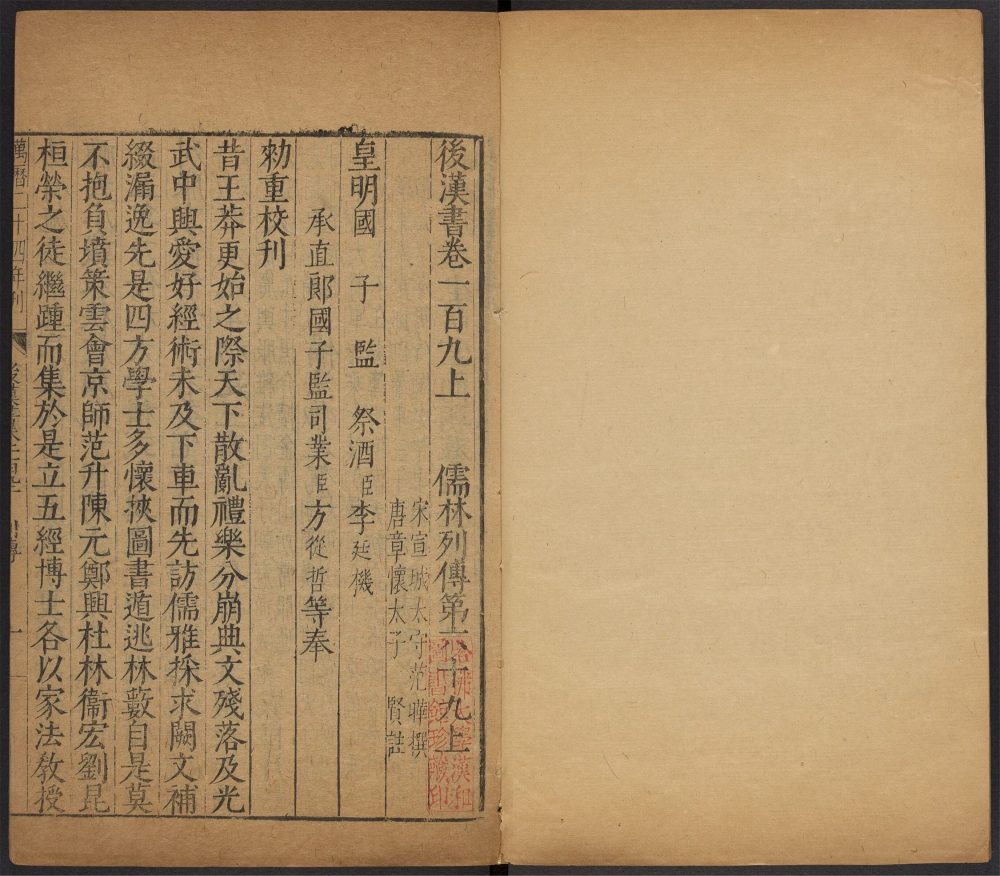 後漢書卷一百九上　儒林列傳第六十九上
宋宣城太守范曄撰
唐章懷太子賢註
皇明國子監祭酒臣李廷機
承直郎國子監司業臣方從哲等奉
勑重校刊
昔王莽更始之際天下散亂禮樂分崩典文殘落及光
武中興愛好經術未及下車而先訪儒雅採求闕文補
綴漏逸先是四方學士多懷挾圖書遁逃林藪自是莫
不抱負墳策雲會京師范升陳元鄭興杜林衞宏劉昆
桓榮之徒繼踵而集於是立五經博士各以家法教授
萬曆二十四年刊
一
哈佛大學漢和
圖書館珍藏印